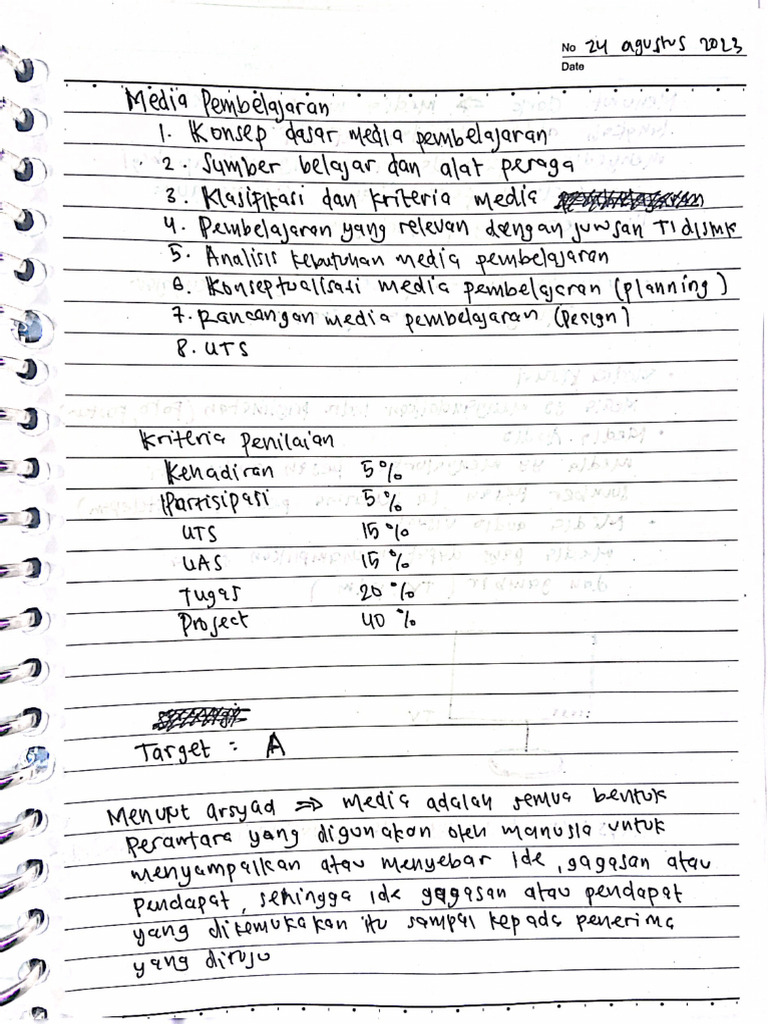 No 24 agustus 2023
Date
Media Pembelajaran
1. Konsep dasar media pembelajaran
2. Sumber belajar dan alat peraga
3. Klasifikasi dan kriteria media
4. Pembelajaran yang relevan dengan jurusan TI di SMK
5. Analisis kebutuhan media pembelajaran
6. Konseptualisasi media pembelajaran (planning)
7. Rancangan media pembelajaran (Design)
8. UTS
Kriteria Penilaian
Kehadiran 5%
Partisipasi 5%
UTS 15%
UAS 15%
Tugas 20%
Project 40%
Target : A
Menurut arsyad ⇒ media adalah semua bentuk
perantara yang digunakan oleh manusia untuk
menyampaikan atau menyebar ide, gagasan atau
pendapat, sehingga ide gagasan atau pendapat
yang dikemukakan itu sampai kepada penerima
yang dituju